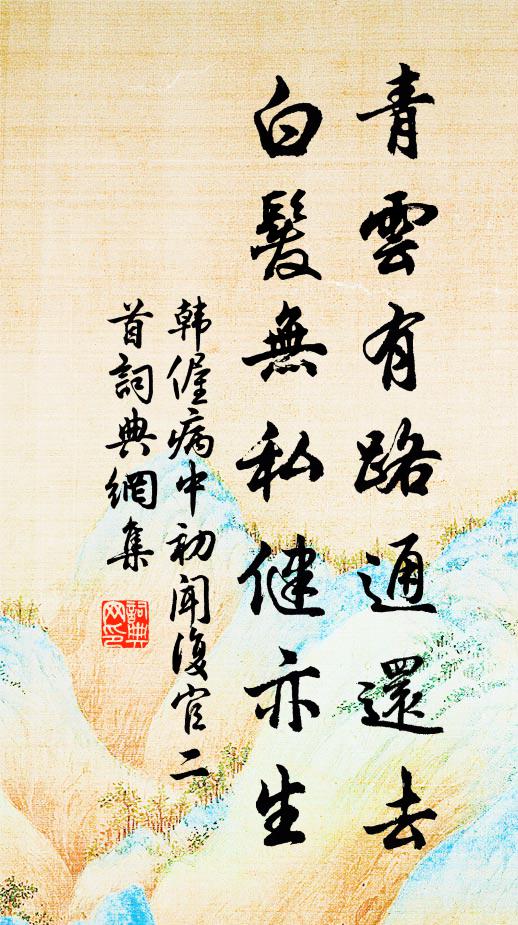 青雲有路通還去
白髮無私健亦生
韩偓病中初闻復官二
首詞典網集
詞典
网印